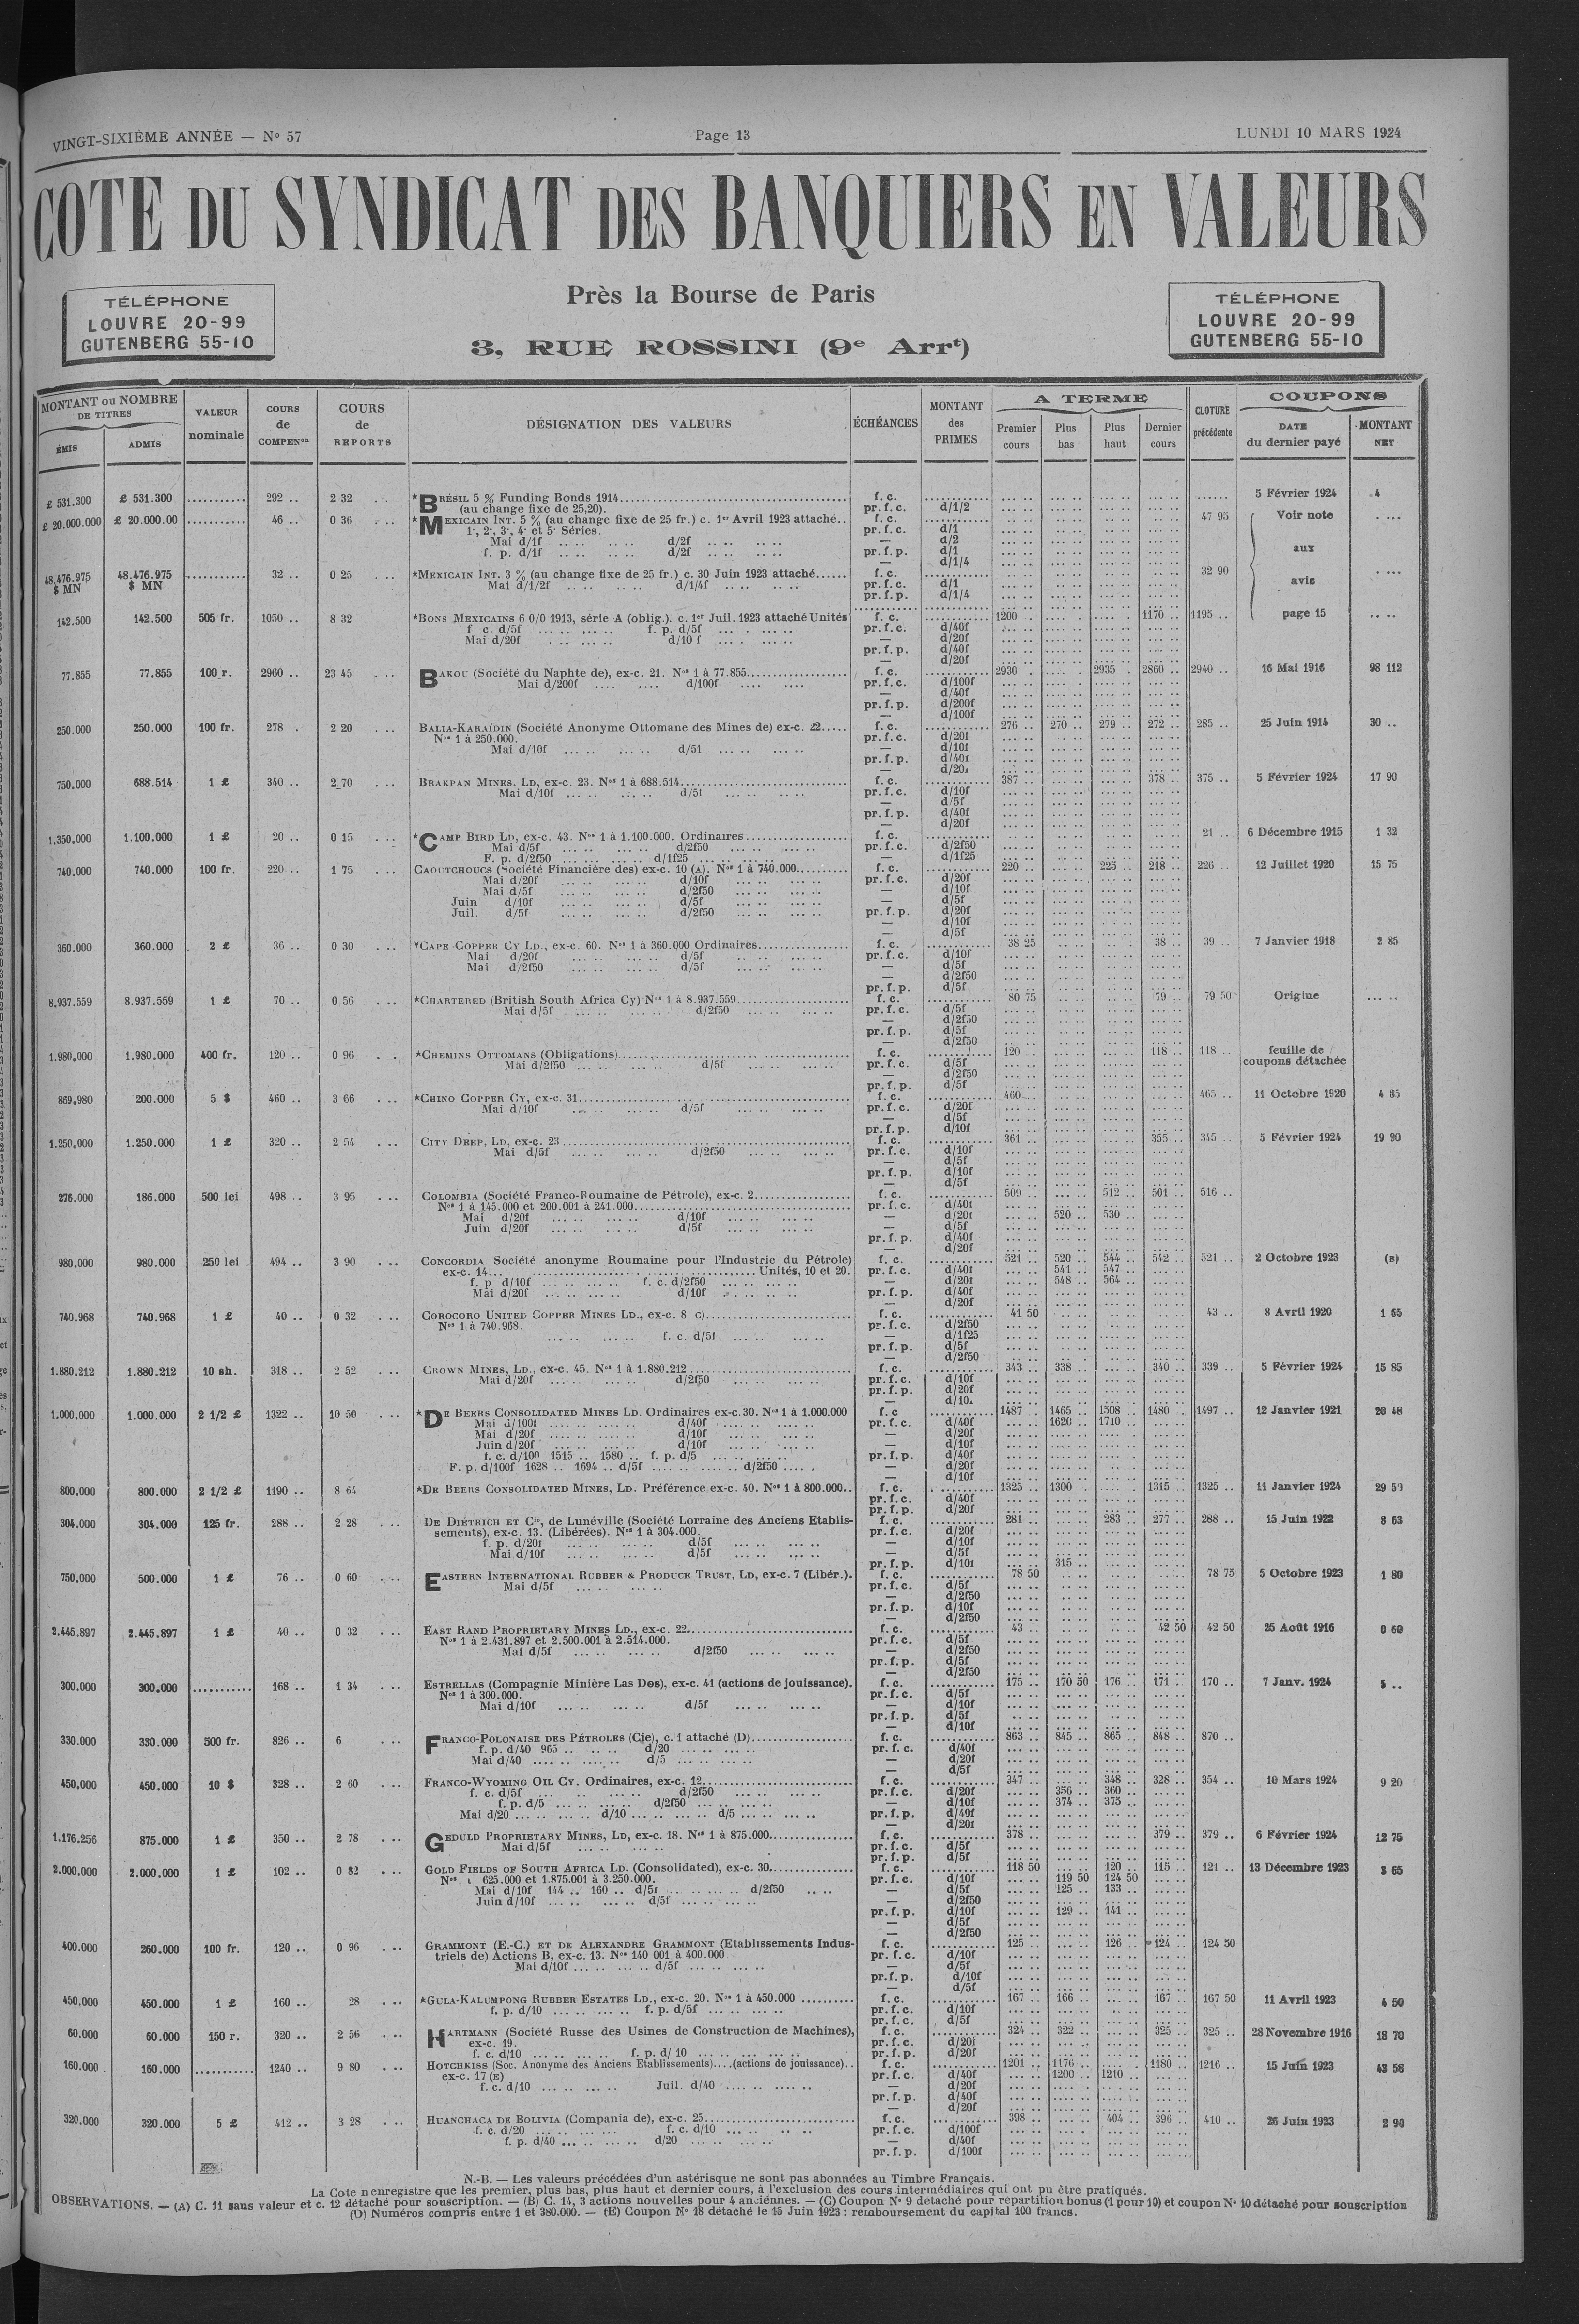 VINGT-SIXIÈME ANNÉE — N° 57
Page 13
LUNDI 10 MARS 1924
COTE DU SYNDICAT DES BANQUIERS EN VALEURS
TÉLÉPHONE
LOUVRE 20-99
GUTENBERG 55-10
Près la Bourse de Paris
3, RUE ROSSINI (9e Arrt)
TÉLÉPHONE
LOUVRE 20-99
GUTENBERG 55-10
MONTANT ou NOMBRE DE TITRES
ÉMIS
ADMIS
VALEUR nominale
COURS de COMPENon
COURS de REPORTS
DÉSIGNATION DES VALEURS
ÉCHÉANCES
MONTANT des PRIMES
A TERME
Premier cours
Plus bas
Plus haut
Dernier cours
CLOTURE précédente
COUPONS
DATE du dernier payé
MONTANT NET
£ 531.300 £ 531.300 ........... 292 .. 2 32 *BRÉSIL 5 % Funding Bonds 1914 f. c. 5 Février 1924 4
(au change fixe de 25,20). pr. f. c. d/1/2
£ 20.000.000 £ 20.000.00 ........... 46 .. 0 36 *MEXICAIN INT. 5 % (au change fixe de 25 fr.) c. 1er Avril 1923 attaché.. f. c. 47 95 Voir note
1·, 2·, 3·, 4· et 5· Séries. pr. f. c. d/1
Mai d/1f d/2f — d/2
f. p. d/1f d/2f pr. f. p. d/1 aux
— d/1/4
48.476.975 $ MN 48.476.975 $ MN ........... 32 .. 0 25 *MEXICAIN INT. 3 % (au change fixe de 25 fr.) c. 30 Juin 1923 attaché...... f. c. 32 90
Mai d/1/2f d/1/4f pr. f. c. d/1 avis
pr. f. p. d/1/4
142.500 142.500 505 fr. 1050 .. 8 32 *BONS MEXICAINS 6 0/0 1913, série A (oblig.). c. 1er Juil. 1923 attaché Unités f. c. 1200 1170 .. 1195 .. page 15
f. c. d/5f f. p. d/5f pr. f. c. d/40f
Mai d/20f d/10 f — d/20f
pr. f. p. d/40f
— d/20f
77.855 77.855 100 r. 2960 .. 23 45 BAKOU (Société du Naphte de), ex-c. 21. Nos 1 à 77.855 f. c. 2930 2935 2860 .. 2940 .. 16 Mai 1916 98 112
Mai d/200f d/100f pr. f. c. d/100f
— d/40f
pr. f. p. d/200f
— d/100f
250.000 250.000 100 fr. 278 . 2 20 BALIA-KARAÏDIN (Société Anonyme Ottomane des Mines de) ex-c. 22..... f. c. 276 270 .. 279 .. 272 .. 285 .. 25 Juin 1914 30 ..
Nos 1 à 250.000. pr. f. c. d/20f
Mai d/10f d/51 — d/10f
pr. f. p. d/40f
— d/20f
750.000 688.514 1 £ 340 .. 2 70 BRAKPAN MINES, LD, ex-c. 23. Nos 1 à 688.514 f. c. 387 .. 378 .. 375 .. 5 Février 1924 17 90
Mai d/10f d/5f pr. f. c. d/10f
— d/5f
pr. f. p. d/40f
— d/20f
1.350.000 1.100.000 1 £ 20 .. 0 15 *CAMP BIRD LD, ex-c. 43. Nos 1 à 1.100.000. Ordinaires f. c. 21 .. 6 Décembre 1915 1 32
Mai d/5f d/2f50 pr. f. c. d/2f50
F. p. d/2f50 d/1f25 — d/1f25
740.000 740.000 100 fr. 220 .. 1 75 CAOUTCHOUCS (Société Financière des) ex-c. 10 (A). Nos 1 à 740.000 f. c. 220 .. 225 .. 218 .. 226 .. 12 Juillet 1920 15 75
Mai d/20f d/10f pr. f. c. d/20f
Mai d/5f d/2f50 — d/10f
Juin d/10f d/5f — d/5f
Juil. d/5f d/2f50 pr. f. p. d/20f
— d/10f
— d/5f
360.000 360.000 2 £ 36 .. 0 30 *CAPE COPPER CY LD., ex-c. 60. Nos 1 à 360.000 Ordinaires f. c. 38 25 38 .. 39 .. 7 Janvier 1918 2 85
Mai d/20f d/5f pr. f. c. d/10f
Mai d/2f50 d/5f — d/5f
— d/2f50
pr. f. p. d/5f
8.937.559 8.937.559 1 £ 70 .. 0 56 *CHARTERED (British South Africa Cy) Nos 1 à 8.937.559 f. c. 80 75 79 .. 79 50 Origine
Mai d/5f d/2f50 pr. f. c. d/5f
— d/2f50
pr. f. p. d/5f
— d/2f50
1.980.000 1.980.000 400 fr. 120 .. 0 96 *CHEMINS OTTOMANS (Obligations) f. c. 120 .. 118 .. 118 .. feuille de coupons détachée
Mai d/2f50 d/5f pr. f. c. d/5f
— d/2f50
pr. f. p. d/5f
869.980 200.000 5 $ 460 .. 3 66 *CHINO COPPER CY, ex-c. 31 f. c. 460 465 .. 11 Octobre 1920 4 85
Mai d/10f d/5f pr. f. c. d/20f
— d/5f
pr. f. p. d/10f
1.250.000 1.250.000 1 £ 320 .. 2 54 CITY DEEP, LD, ex-c. 23 f. c. 361 355 .. 345 .. 5 Février 1924 19 90
Mai d/5f d/2f50 pr. f. c. d/10f
— d/5f
pr. f. p. d/10f
— d/5f
276.000 186.000 500 lei 498 .. 3 95 COLOMBIA (Société Franco-Roumaine de Pétrole), ex-c. 2 f. c. 509 .. 512 .. 501 .. 516 ..
Nos 1 à 145.000 et 200.001 à 241.000 pr. f. c. d/40f
Mai d/20f d/10f — d/20f 520 .. 530 ..
Juin d/20f d/5f — d/5f
pr. f. p. d/40f
— d/20f
980.000 980.000 250 lei 494 .. 3 90 CONCORDIA Société anonyme Roumaine pour l'Industrie du Pétrole) f. c. 521 520 .. 544 .. 542 .. 521 .. 2 Octobre 1923 (B)
ex-c. 14... Unités, 10 et 20. pr. f. c. d/40f 541 .. 547 ..
f. p. d/10f f. c. d/2f50 — d/20f 548 .. 564 ..
Mai d/20f d/10f pr. f. p. d/40f
— d/20f
740.968 740.968 1 £ 40 .. 0 32 COROCORO UNITED COPPER MINES LD., ex-c. 8 C) f. c. 41 50 43 .. 8 Avril 1920 1 65
Nos 1 à 740.968. pr. f. c. d/2f50
f. c. d/5f — d/1f25
pr. f. p. d/5f
— d/2f50
1.880.212 1.880.212 10 sh. 318 .. 2 52 CROWN MINES, LD., ex-c. 45. Nos 1 à 1.880.212 f. c. 343 .. 338 .. 340 .. 339 .. 5 Février 1924 15 85
Mai d/20f d/2f50 pr. f. c. d/10f
pr. f. p. d/20f
— d/10.
1.000.000 1.000.000 2 1/2 £ 1322 .. 10 50 *DE BEERS CONSOLIDATED MINES LD. Ordinaires ex-c. 30. Nos 1 à 1.000.000 f. c 1487 1465 .. 1508 .. 1480 .. 1497 .. 12 Janvier 1921 20 48
Mai d/100f d/40f pr. f. c. d/40f 1620 .. 1710 ..
Mai d/20f d/10f — d/20f
Juin d/20f d/10f — d/10f
f. c. d/100 1515 .. 1580 .. f. p. d/5 pr. f. p. d/40f
F. p. d/100f 1628 .. 1694 .. d/5f d/2f50 — d/20f
— d/10f
800.000 800.000 2 1/2 £ 1190 .. 8 64 *DE BEERS CONSOLIDATED MINES, LD. Préférence ex-c. 40. Nos 1 à 800.000.. f. c. 1325 .. 1300 1315 .. 1325 .. 11 Janvier 1924 29 50
pr. f. c. d/40f
pr. f. p. d/20f
304.000 304.000 125 fr. 288 .. 2 28 DE DIÉTRICH ET Cie, de Lunéville (Société Lorraine des Anciens Etablis- f. c. 281 .. 283 .. 277 .. 288 .. 15 Juin 1922 8 63
sements), ex-c. 13. (Libérées). Nos 1 à 304.000. pr. f. c. d/20f
f. p. d/20f d/5f — d/10f
Mai d/10f d/5f — d/5f
pr. f. p. d/10f 315 ..
750.000 500.000 1 £ 76 .. 0 60 EASTERN INTERNATIONAL RUBBER & PRODUCE TRUST, LD, ex-c. 7 (Libér.). f. c. 78 50 78 75 5 Octobre 1923 1 80
Mai d/5f pr. f. c. d/5f
— d/2f50
pr. f. p. d/10f
— d/2f50
2.445.897 2.445.897 1 £ 40 .. 0 32 EAST RAND PROPRIETARY MINES LD., ex-c. 22 f. c. 43 .. 42 50 42 50 25 Août 1916 0 60
Nos 1 à 2.431.897 et 2.500.001 à 2.514.000. pr. f. c. d/5f
Mai d/5f d/2f50 — d/2f50
pr. f. p. d/5f
— d/2f50
300.000 300.000 ........... 168 .. 1 34 ESTRELLAS (Compagnie Minière Las Dos), ex-c. 41 (actions de jouissance). f. c. 175 .. 170 50 176 .. 171 .. 170 .. 7 Janv. 1924 5 ..
Nos 1 à 300.000. pr. f. c. d/5f
Mai d/10f d/5f — d/10f
pr. f. p. d/5f
— d/10f
330.000 330.000 500 fr. 826 .. 6 FRANCO-POLONAISE DES PÉTROLES (Cie), c. 1 attaché (D) f. c. 863 .. 845 .. 865 .. 848 .. 870 ..
f. p. d/40 965 .. d/20 pr. f. c. d/40f
Mai d/40 d/5 — d/20f
— d/5f
450.000 450.000 10 $ 328 .. 2 60 FRANCO-WYOMING OIL CY. Ordinaires, ex-c. 12 f. c. 347 .. 348 .. 328 .. 354 .. 10 Mars 1924 9 20
f. c. d/5f d/2f50 pr. f. c. d/20f 356 .. 360 ..
f. p. d/5 d/2f50 — d/10f 374 .. 375 ..
Mai d/20 d/10 d/5 pr. f. p. d/40f
— d/20f
1.176.256 875.000 1 £ 350 .. 2 78 GEDULD PROPRIETARY MINES, LD, ex-c. 18. Nos 1 à 875.000 f. c. 378 .. 379 .. 379 .. 6 Février 1924 12 75
Mai d/5f pr. f. c. d/5f
pr. f. p. d/5f
2.000.000 2.000.000 1 £ 102 .. 0 82 GOLD FIELDS OF SOUTH AFRICA LD. (Consolidated), ex-c. 30 f. c. 118 50 120 .. 115 .. 121 .. 13 Décembre 1923 3 65
Nos 625.000 et 1.875.001 à 3.250.000. pr. f. c. d/10f 119 50 124 50
Mai d/10f 144 .. 160 .. d/5f d/2f50 — d/5f 125 .. 133 ..
Juin d/10f d/5f — d/2f50
pr. f. p. d/10f 129 .. 141 ..
— d/5f
— d/2f50
400.000 260.000 100 fr. 120 .. 0 96 GRAMMONT (E.-C.) ET DE ALEXANDRE GRAMMONT (Etablissements Indus- f. c. 125 .. 126 .. 124 .. 124 50
triels de) Actions B, ex-c. 13. Nos 140 001 à 400.000 pr. f. c. d/10f
Mai d/10f d/5f — d/5f
pr. f. p. d/10f
— d/5f
450.000 450.000 1 £ 160 .. 28 *GULA-KALUMPONG RUBBER ESTATES LD., ex-c. 20. Nos 1 à 450.000 f. c. 167 166 .. 167 .. 167 50 11 Avril 1923 4 50
f. p. d/10 f. p. d/5f pr. f. c. d/10f
pr. f. c. d/5f
60.000 60.000 150 r. 320 .. 2 56 HARTMANN (Société Russe des Usines de Construction de Machines), f. c. 324 .. 322 .. 325 .. 325 .. 28 Novembre 1916 18 70
ex-c. 19. pr. f. c. d/20f
f. c. d/10 f. p. d/ 10 pr. f. p. d/20f
160.000 160.000 ........... 1240 .. 9 80 HOTCHKISS (Soc. Anonyme des Anciens Etablissements)....(actions de jouissance).. f. c. 1201 .. 1176 .. 1180 .. 1216 .. 15 Juin 1923 43 58
ex-c. 17 (E) pr. f. c. d/40f 1200 .. 1210 ..
f. c. d/10 Juil. d/40 — d/20f
pr. f. p. d/40f
— d/20f
320.000 320.000 5 £ 412 .. 3 28 HUANCHACA DE BOLIVIA (Compania de), ex-c. 25 f. c. 398 .. 404 .. 396 .. 410 .. 26 Juin 1923 2 90
f. c. d/20 f. c. d/10 pr. f. c. d/100f
f. p. d/40 d/20 — d/40f
pr. f. p. d/100f
N.-B. — Les valeurs précédées d'un astérisque ne sont pas abonnées au Timbre Français.
La Cote n enregistre que les premier, plus bas, plus haut et dernier cours, à l'exclusion des cours intermédiaires qui ont pu être pratiqués.
OBSERVATIONS. — (A) C. 11 sans valeur et c. 12 détaché pour souscription. — (B) C. 14, 3 actions nouvelles pour 4 anciennes. — (C) Coupon N° 9 detaché pour repartition bonus (1 pour 10) et coupon N° 10 détaché pour souscription
(D) Numéros compris entre 1 et 380.000. — (E) Coupon N° 18 détaché le 15 Juin 1923 : remboursement du capital 100 francs.